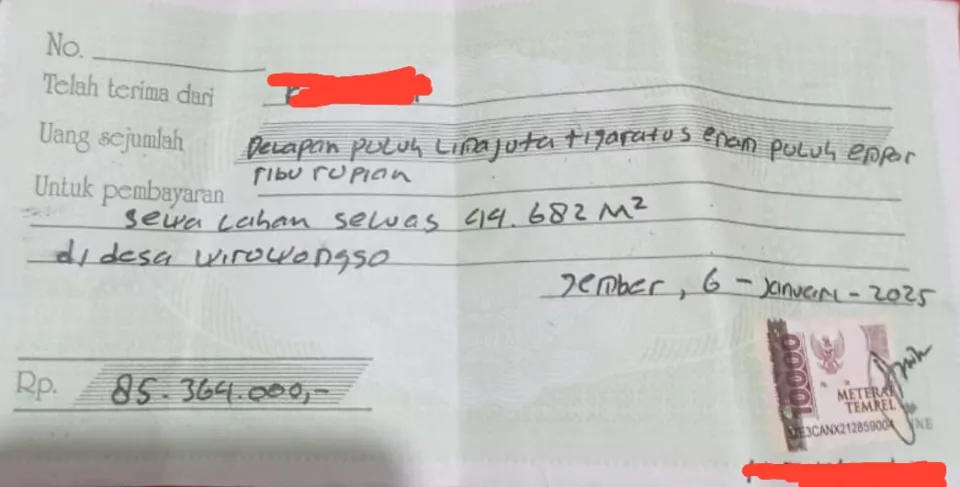 No.
Telah terima dari
Uang sejumlah Delapan puluh Lima juta tigaratus enam puluh empat
ribu rupiah
Untuk pembayaran
sewa Lahan seluas 44.682 M²
di desa wirowongso
Jember, 6 - Januari - 2025
Rp. 85.364.000,-
10000
METERAI
TEMPEL
3CANX212859004